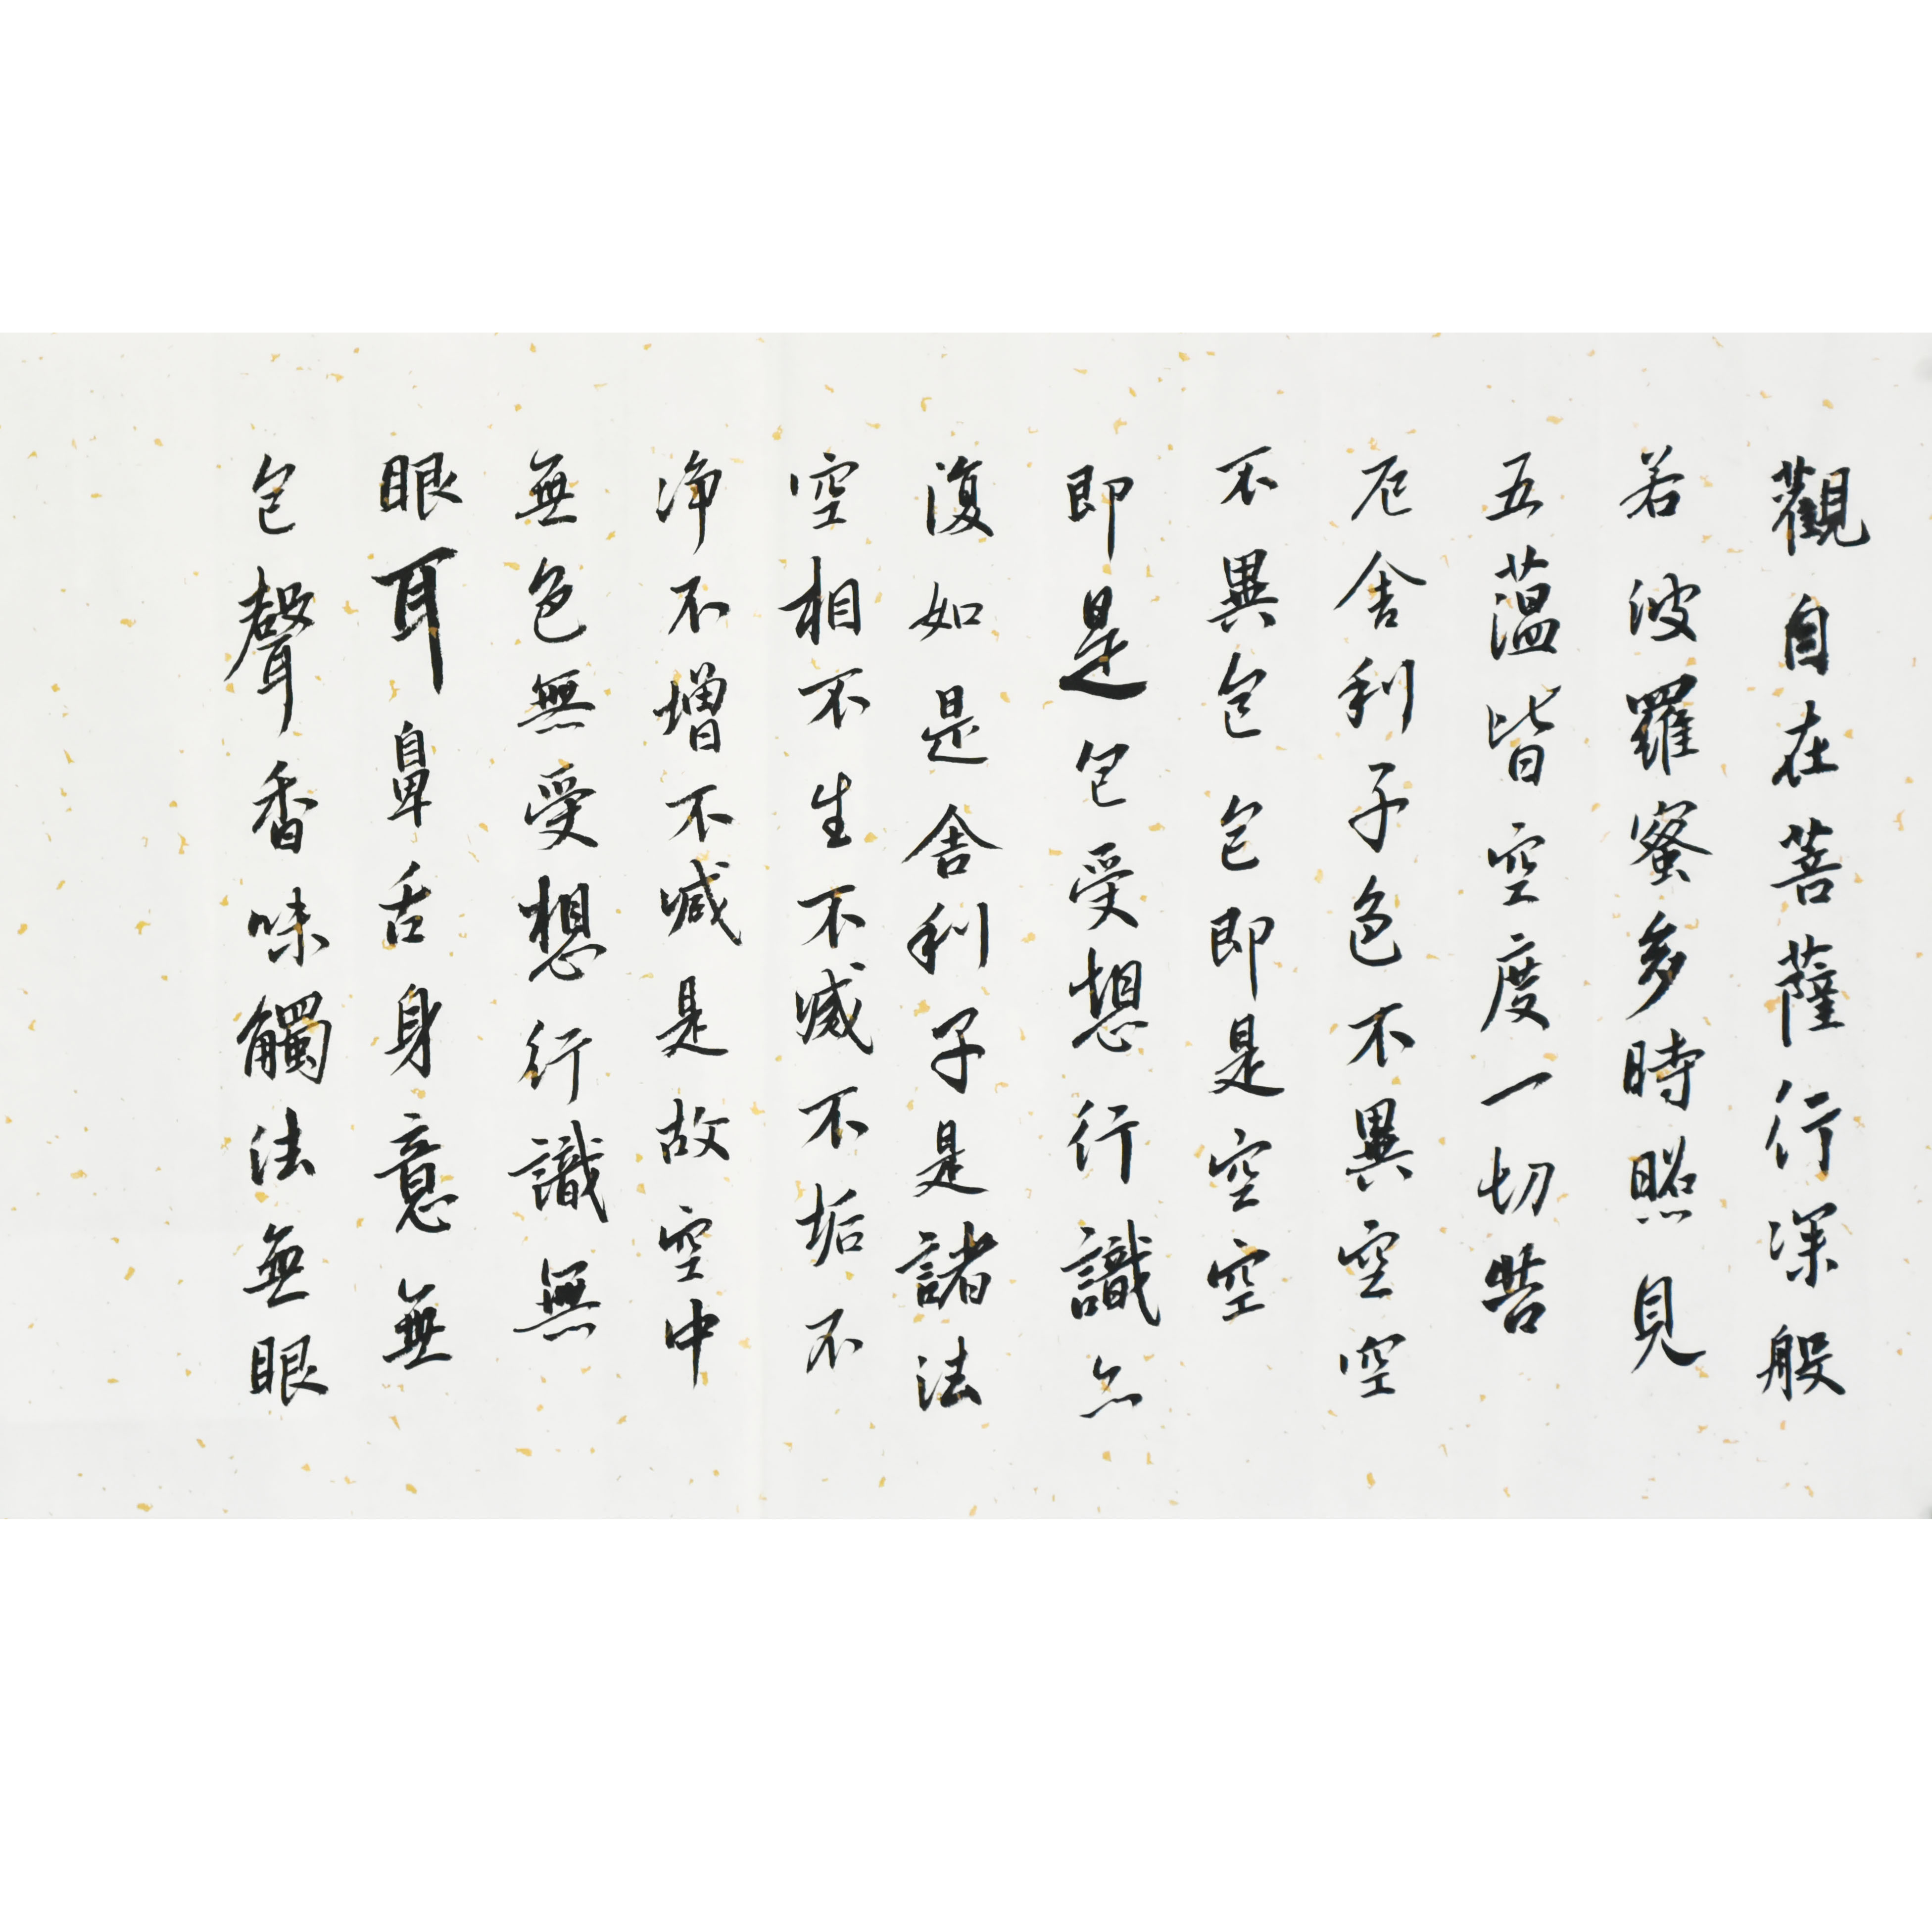 觀自在菩薩行深般
若波羅蜜多時照見
五蕰皆空度一切苦
厄舍利子色不異空空
不異色色即是空空
即是色受想行識亦
復如是舍利子是諸法
空相不生不滅不垢不
净不增不減是故空中
無色無受想行識無
眼耳鼻舌身意無
色聲香味觸法無眼